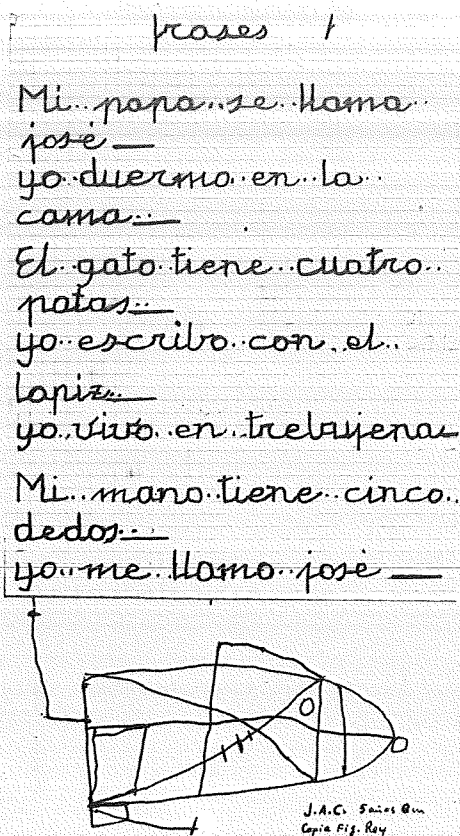 frases 1
Mi papa se llama
josé
yo duermo en la
cama
El gato tiene cuatro
patas
yo escribo con el
lapiz
yo vivo en trebujena
Mi mano tiene cinco
dedos
yo me llamo josé
J.A.C. 5 años 8m
Copia Fig. Rey